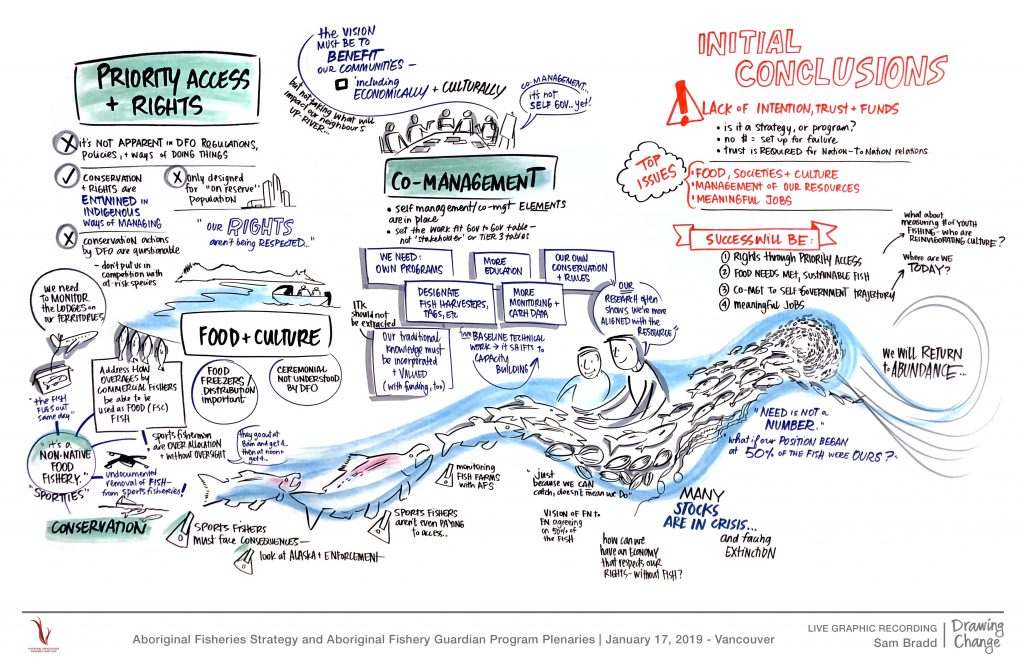 PRIORITY ACCESS
+ RIGHTS
it's NOT APPARENT IN DFO REGULATIONS,
Policies, + ways of DOING THINGS
CONSERVATION
+ RIGHTS are
ENTWINED IN
INDIGENOUS
ways of MANAGING
only designed
for "on reserve"
population
conservation actions
by DFO are questionable
- don't put us in
competition with
at-risk species
"OUR RIGHTS
aren't being RESPECTED..."
the VISION
MUST BE TO
BENEFIT
OUR COMMUNITIES -
including
ECONOMICALLY + CULTURALLY
but not taking what will
impact our neighbours
UP-RIVER...
CO-MANAGEMENT...
it's not
SELF GOV.. yet!
CO-MANAGEMENT
• self management/co-mgt ELEMENTS
are in place
• set the WORK AT GOV to GOV table -
not 'stakeholder' or TIER 3 tables
WE NEED:
OWN PROGRAMS
MORE
EDUCATION
OUR OWN
CONSERVATION
+ RULES
DESIGNATE
FISH HARVESTERS,
TAGS, etc
MORE
MONITORING +
CATCH DATA
ITK
should not
be extracted
Our traditional
knowledge must
be incorporated
+ VALUED
(with funding, too)
from BASELINE TECHNICAL
WORK → it SHIFTS to
CAPACITY
BUILDING
OUR
RESEARCH often
shows we're more
ALIGNED with the
RESOURCE
INITIAL
CONCLUSIONS
!
LACK OF INTENTION, TRUST + FUNDS
• is it a strategy, or program?
• no $ = set up for failure
• trust is REQUIRED for Nation-To Nation relations
TOP
ISSUES
• FOOD, SOCIETIES + CULTURE
• MANAGEMENT OF OUR RESOURCES
• MEANINGFUL JOBS
SUCCESS WILL BE:
① Rights through PRIORITY ACCESS
② FOOD NEEDS MET, SUSTAINABLE FISH
③ CO-MGT TO SELF GOVERNMENT TRAJECTORY
④ meaningful JOBS
what about
measuring # of YOUTH
FISHING - who are
REINVIGORATING CULTURE?
where are WE
TODAY?
we need
to MONITOR
the LODGES on
our TERRITORIES
FOOD + CULTURE
Address HOW
OVERAGES by
COMMERCIAL FISHERS
be able to be
used as FOOD (FSC)
FISH
FOOD
FREEZERS/
DISTRIBUTION
important
CEREMONIAL
NOT UNDERSTOOD
by DFO
"the FISH
FLIES OUT
same day"
"it's a
NON-NATIVE
FOOD
FISHERY."
"SPORTIES"
! sports fisherman
are OVER ALLOCATION
+ without OVERSIGHT
they go out at
8am and get 4...
then at noon +
get 4...
undocumented
removal of FISH -
from sports fisheries!
CONSERVATION
SPORTS FISHERS
must face CONSEQUENCES -
look at ALASKA + ENFORCEMENT
SPORTS FISHERS
aren't even PAYING
to access...
monitoring
FISH FARMS
with AFS
"just
because WE CAN
catch, doesn't mean we Do"
VISION OF FN to
FN agreeing
on 50% of
the FISH
how can we
have an ECONOMY
that respects our
RIGHTS - without FISH?
MANY
STOCKS
ARE IN CRISIS...
and facing
EXTINCTION
"NEED is NOT a
NUMBER."
"what if our POSITION BEGAN
at 50% OF THE FISH WERE OURS?"
WE WILL RETURN
to ABUNDANCE...
Aboriginal Fisheries Strategy and Aboriginal Fishery Guardian Program Plenaries | January 17, 2019 - Vancouver
LIVE GRAPHIC RECORDING
Sam Bradd
Drawing
Change